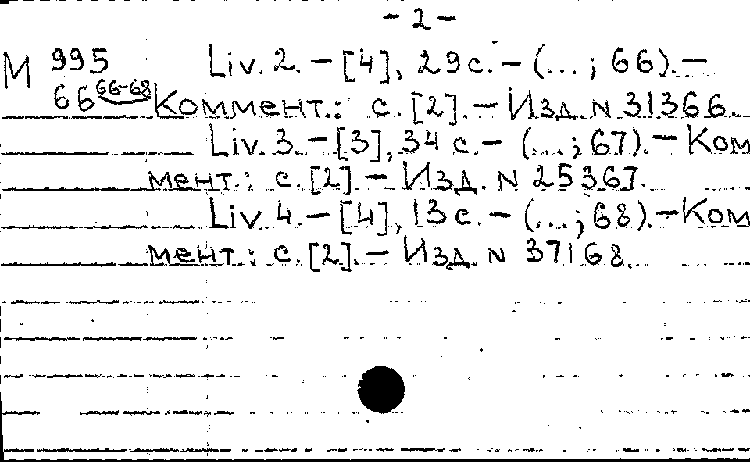 - 2 -
М 995 Liv. 2. – [4], 29 с. – (... ; 66). –
66 66-68 Коммент.: с. [2]. – Изд. N 31366.
Liv. 3. – [3], 34 с. – (... ; 67). – Ком
мент.: с. [2] – Изд. N 25367.
Liv. 4. – [4], 13 с. – (... ; 68). – Ком
мент.: с. [2]. – Изд. N 37168.